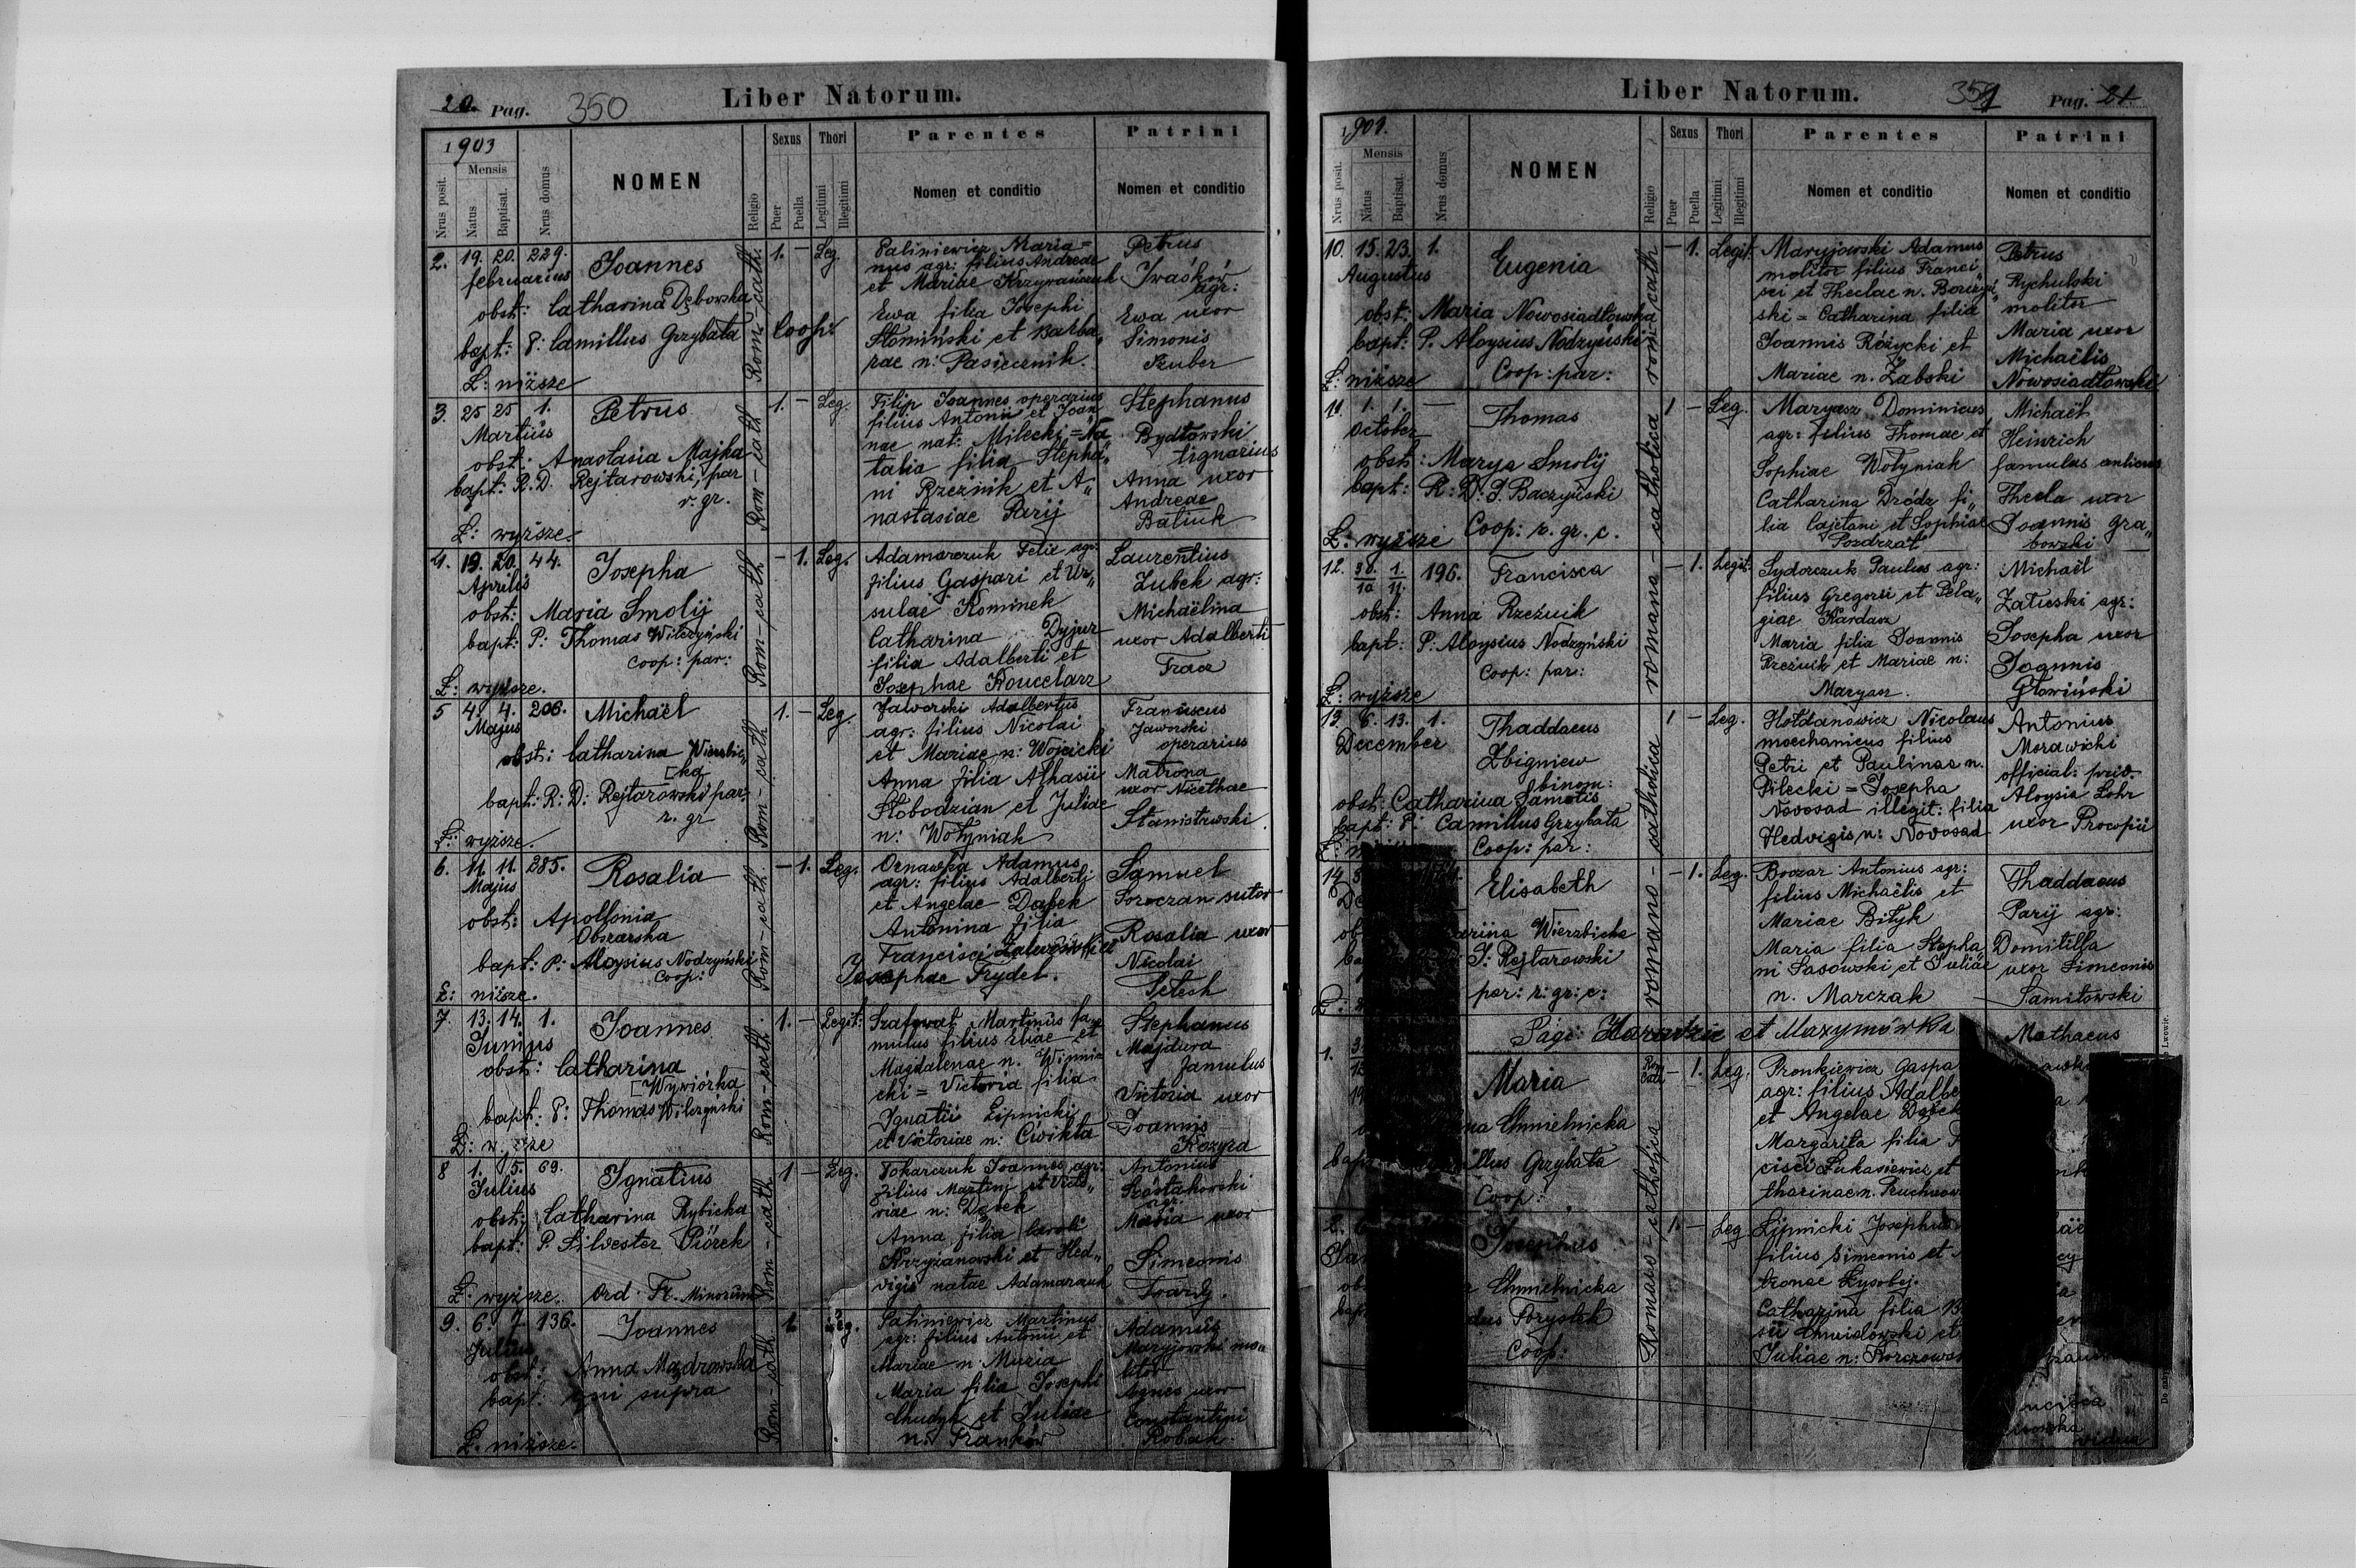 20. Pag. 350
Liber Natorum.
1903
Nrus posit.
Mensis
Natus
Baptisat.
Nrus domus
NOMEN
Religio
Sexus
Puer
Puella
Thori
Legitimi
Illegitimi
Parentes
Nomen et conditio
Patrini
Nomen et conditio
2. 19. 20. 229.
februarius
Joannes
obst: Catharina Dębowska
bapt: P: Camillus Grzybała Coop:
Ł: niższe
Rom-cath.
1. - Leg.
Saliniewicz Maria=
nus agr: filius Andreae
et Mariae Krzywańczuk
Ewa filia Josephi
Słomiński et Barba„
rae n: Pasiecznik.
Petrus
Iwaśków
agr:
Ewa uxor
Simonis
Szuber
3. 25 25 1.
Martius
Petrus
obst: Anastasia Majka
bapt: R. D. Rejtarowski, par
r. gr.
Ł: wyższe.
Rom-cath
1. - Leg.
Filip Joannes operarius
filius Antonii et Joan
nae nat: Milecki = Na
talia filia Stepha„
ni Rzeźnik et A„
nastasiae Parij
Stephanus
Bydłowski
lignarius
Anna uxor
Andreae
Batiuk
4. 19. 20. 44.
Aprilis
Josepha
obst: Maria Smolij
bapt: P: Thomas Wilczyński
coop: par:
Ł: wyższe.
Rom-cath
- 1. Leg.
Adamarczuk Felix agr.
filius Gaspari et Ur„
sulae Kominek
Catharina Dyjur
filia Adalberti et
Josephae Koncelarz
Laurentius
Zubek agr:
Michaëlina
uxor Adalberti
Fracz
5 4. 4. 206.
Majus
Michaël
obst: Catharina Wierzbic„
[ka
bapt: R: D: Rejtarowski par:
r. gr
Ł: wyższe.
Rom-cath
1. - Leg.
Jaworski Adalbertus
agr: filius Nicolai
et Mariae n: Wojcicki
Anna filia Athasii
Słobodzian et Juliae
n: Wołyniak
Franciscus
Jaworski
operarius
Matrona
uxor Nicethae
Stanistawski
6. 11. 11. 285.
Majus
Rosalia
obst: Apollonia
Obszarska
bapt: P: Aloysius Nodzyński
Coop:
Ł: niższe.
Rom-cath
- 1. Leg.
Ornawka Adamus
agr: filius Adalberti
et Angelae Dąbek
Antonina filia
Francisci Zalewski et
Josephae Frydel.
Samuel
Soroczan sutor
Rosalia uxor
Nicolai
Petech
7. 13. 14. 1.
Junius
Joannes
obst: Catharina
[Wywiórka
bapt: P: Thomas Wilczyński
Rom-cath.
1. - Legit:
Martinus fa„
mulus filius Eliae et
Magdalenae n. Winnic
cki = Victoria filia
Ignatii Lipnicki
et Victoriae n: Ćwikła
Stephanus
Majdura
famulus
Victoria uxor
Joannis
Kozyra
8 1. 5. 69.
Julius
Ignatius
obst: Catharina Rybicka
bapt: P. Silvester Piórek
Ł: wyższe. Ord. Fr. Minorum
Rom-cath
1 - Leg.
Tokarczuk Joannes agr:
filius Martini et Victo„
riae n: Dąbek
Anna filia Caroli
Krzyżanowski et Hed„
vigis natae Adamarczuk
Antonius
Szostakowski
agr.
Maria uxor
Simeonis
Twardy.
9. 6 7 136.
Julius
Joannes
obst: Anna Mądrowska
bapt: qui supra
Ł. niższe.
Rom-cath
1. Leg.
Saliniewicz Martinus
agr: filius Antonii et
Mariae n. Muzia
Maria filia Josephi
Chudyk et Juliae
n: Franków
Adamus
Maryjowski mo„
litor
Agnes uxor
Constantini
Robak.
Liber Natorum.
351 Pag. 21.
1901.
Nrus posit.
Mensis
Natus
Baptisat.
Nrus domus
NOMEN
Religio
Sexus
Puer
Puella
Thori
Legitimi
Illegitimi
Parentes
Nomen et conditio
Patrini
Nomen et conditio
10. 15. 23. 1.
Augustus
Eugenia
obst: Maria Nowosiadłowska
bapt: P. Aloysius Nodzyński
Ł: niższe Coop: par:
rom-cath
- 1. Legit.
Maryjowski Adamus
molitor filius Franci„
sci et Theclae n.
ski = Catharina filia
Joannis Różycki et
Mariae n. Żabski
Petrus
Rychulski
molitor
Maria uxor
Michaëlis
Nowosiadłowski
11. 1. 1. -
October
Thomas
obst: Marya Smolij
bapt: R: D: J. Baczyński
Ł: wyższe Coop: r. gr. c.
romana-catholica
1 - Leg.
Maryasz Dominicus
agr: filius Thomae et
Sophiae Wołyniak
Catharina Dródz fi„
lia Cajetani et Sophiae
Pozdrzał
Michaël
Heinrich
famulus
Thecla uxor
Joannis Gra„
bowski
12. 30/10 1/11 196.
Francisca
obst: Anna Rzeźnik
bapt: P: Aloysius Nodzyński
Coop: par:
Ł: wyższe
- 1. Legit:
Sydorczuk Paulus agr:
filius Gregorii et Pela„
giae Kardasz
Maria filia Joannis
Rzeźnik et Mariae n:
Maryasz.
Michaël
Załuski agr:
Josepha uxor
Joannis
Głowiński
13 6. 13. 1.
December
Thaddaeus
Zbigniew
binom:
obst: Catharina Samotis
bapt: P: Camillus Grzybała
Coop: par:
romano-catholica
1 - Leg.
Hołdanowicz Nicolaus
moechanicus filius
Petri et Paulinae n.
Pilecki = Josepha
Novosad illegit: filia
Hedvigis n: Novosad
Antonius
Morawicki
official: priv.
Aloysia Lohr
uxor Procopii
14
Elisabeth
arina Wierzbicka
J: Rejtarowski
par: r: gr: c:
- 1. Leg.
Boozar Antonius agr:
filius Michaëlis et
Mariae Bityk
Maria filia Stepha„
ni Sasowski et Juliae
n. Marczak
Thaddaeus
Parij agr:
Domitilla
uxor Simeonis
Samitowski
Pagi: et Mazymówka
1.
Maria
na Chmielnicka
bapt: illus Grzybała
Coop:
Rom
Cath
- 1. Leg.
Pronkiewicz Gaspa
agr: filius Adalbe
et Angelae Dąbek
Margarita filia F
cisci Łukasiewicz et
tharinae n. Pruchnow
Mathaeus
2.
Josephus
Chmielnicka
dus Forystek
Coop:
Romano-catholica
1. - Leg
Lipnicki Josephus
filius Simeonis et
tronae Łysobej.
Catharina filia
sii Chmielowski et
Juliae n: Korczows